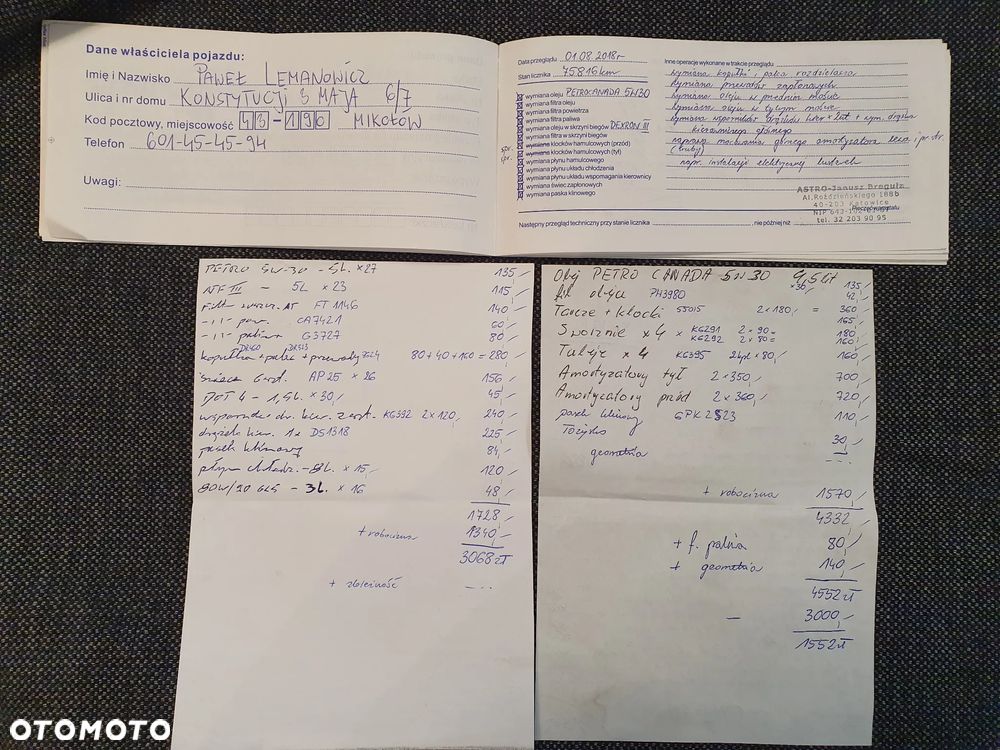 Dane właściciela pojazdu:
Imię i Nazwisko PAWEŁ LEMANOWICZ
Ulica i nr domu KONSTYTUCJI 3 MAJA 6/7
Kod pocztowy, miejscowość 43-190 MIKOŁÓW
Telefon 601-45-45-94
Uwagi:
Data przeglądu 01.08.2018r
Stan licznika 75816 km
wymiana oleju PETROCANADA 5W30
wymiana filtra oleju
wymiana filtra powietrza
wymiana filtra paliwa
wymiana oleju w skrzyni biegów DEXRON III
wymiana filtra w skrzyni biegów
spr. wymiana klocków hamulcowych (przód)
spr. wymiana klocków hamulcowych (tył)
wymiana płynu hamulcowego
wymiana płynu układu chłodzenia
wymiana płynu układu wspomagania kierownicy
wymiana świec zapłonowych
wymiana paska klinowego
Następny przegląd techniczny przy stanie licznika , nie później niż
Inne operacje wykonane w trakcie przeglądu
wymiana kopułki i palca rozdzielacza
wymiana przewodów zapłonowych
wymiana oleju w przednim moście
wymiana oleju w tylnym moście
wymiana wsporników drążków kier. + wym. drążka
kierowniczego głównego
naprawa mocowania górnego amortyzatora lewa i pr. str.
(śruby)
napr. instalacji elektrycznej lusterek
ASTRO-Janusz Bregulz
Al.Roździeńskiego 188b
40-203 Katowice
tel. 32 203 90 95
PETRO 5W-30 - 5L. x27 135,-
ATF III - 5L x 23 115,-
FT 1146 140,-
-,,- pow. CA7421 60,-
-,,- paliwa G3727 80,-
kopułka + palec + przewody 80+40+160 = 280,-
świece 6szt. AP25 x 26 156,-
DOT 4 - 1,5L x 30,- 45,-
wsporniki dr. kier. 2szt. KG592 2 x 120,- 240,-
drążek kier. 1x DS1318 225,-
pasek klinowy 84,-
płyn chłodz. - 8L. x 15,- 120,-
80W/90 GL5 - 3L. x 16 48,-
1728,-
+ robocizna 1340,-
3068 zł
+ zbieżność - - -
Olej PETRO CANADA 5W30 4,5 lit
x30,- 135,-
fil. oleju PH3980 42,-
Tarcze + klocki 55015 2 x 180,- = 360,-
165,-
Sworznie x 4 x KG291 2 x 90= 180,-
KG292 2 x 80= 160,-
Tuleje x 4 KG395 2kpl x 80,- 160,-
Amortyzatory tył 2 x 350,- 700,-
Amortyzatory przód 2 x 360,- 720,-
pasek klinowy 6PK2523 110,-
Łożysko 30,-
geometria - - -
+ robocizna 1570,-
4332,-
+ f. paliwa 80,-
+ geometria 140,-
4552 zł
- 3000,-
1552 zł
OTOMOTO